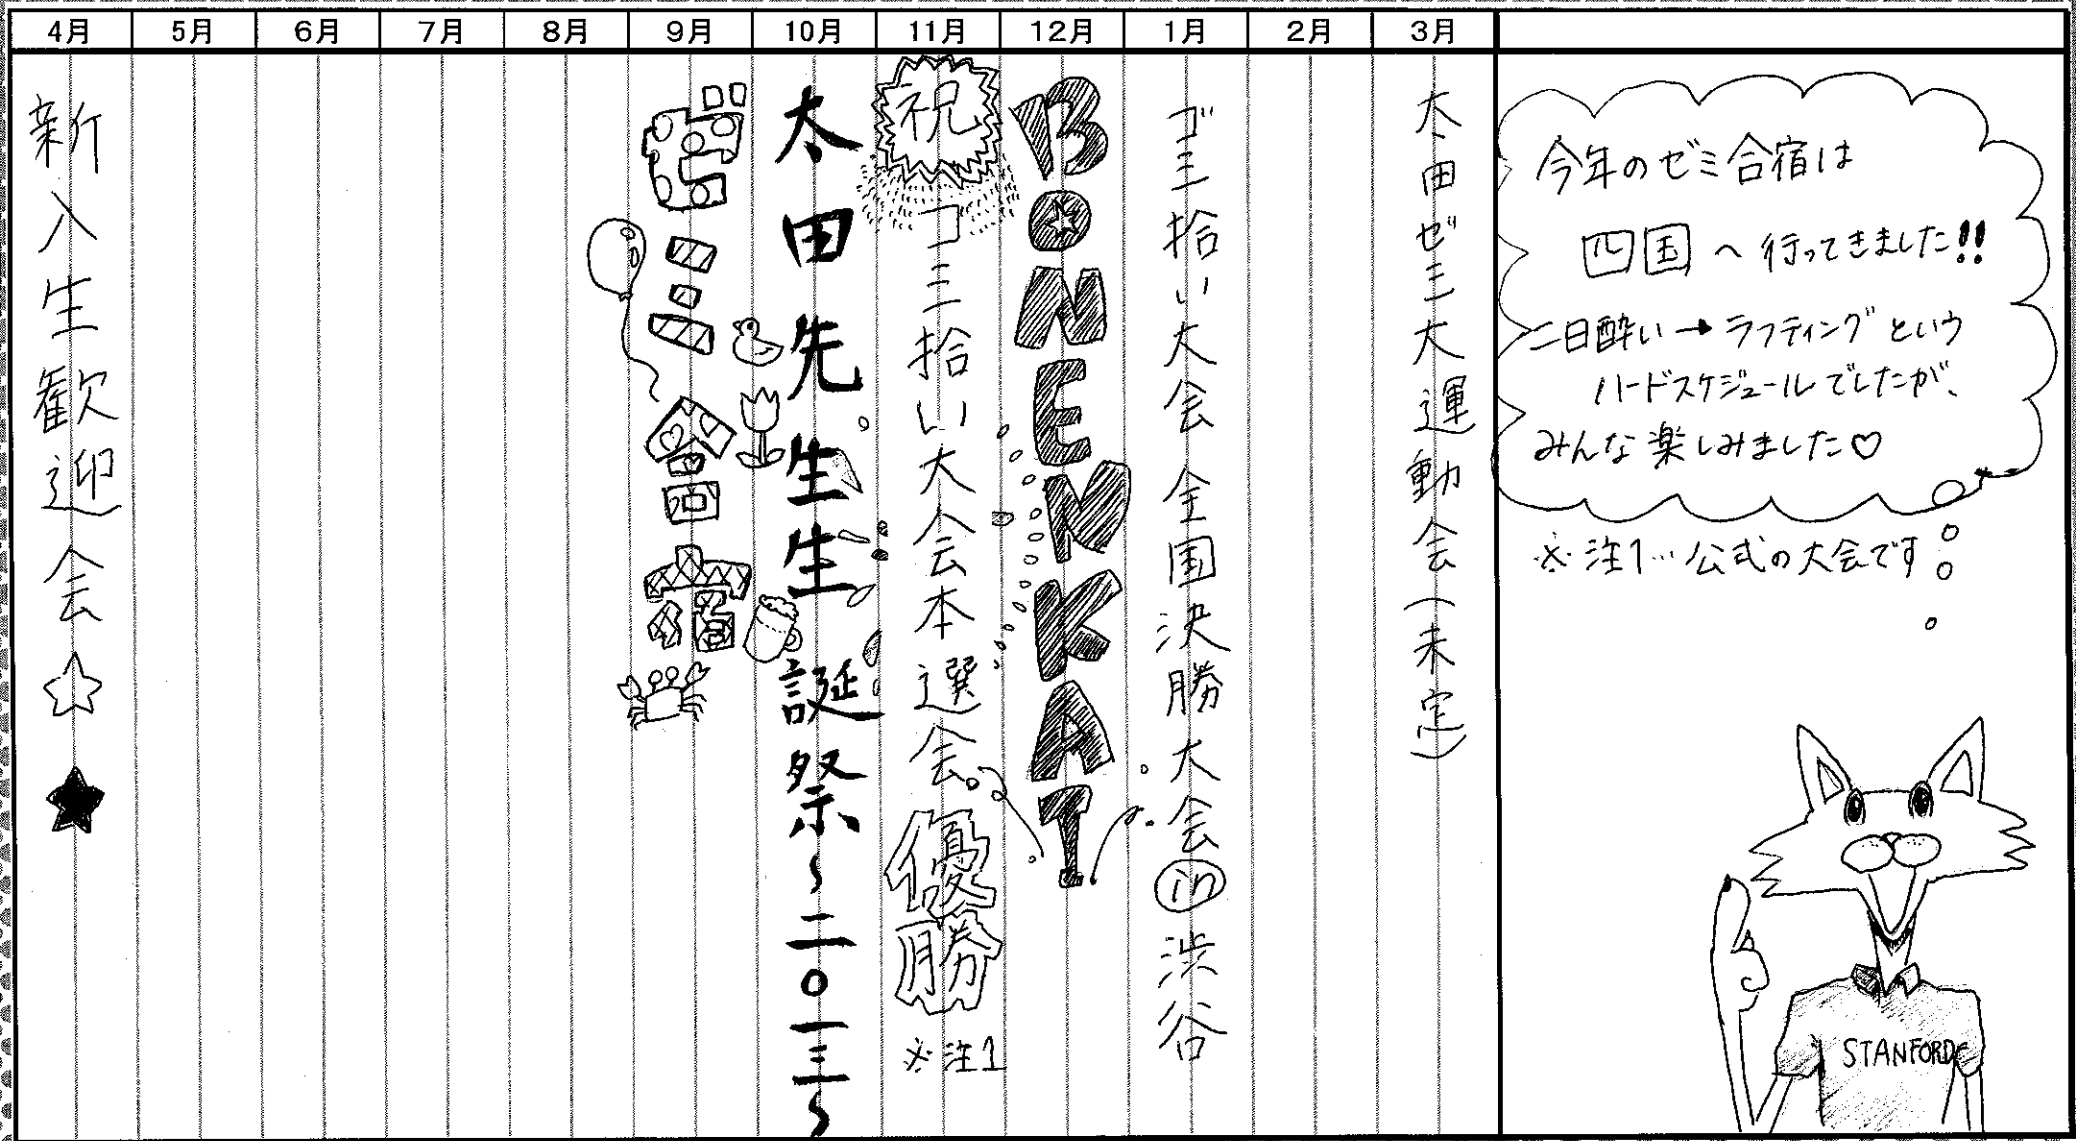 4月
5月
6月
7月
8月
9月
10月
11月
12月
1月
2月
3月
新入生歓迎会☆★
ゼミ合宿
太田先生生誕祭〜二〇一三〜
祝
ゴミ拾い大会本選会。優勝
※注1
BONENKAI
ゴミ拾い大会 全国決勝大会 in 渋谷
太田ゼミ大運動会(未定)
今年のゼミ合宿は
四国へ行ってきました!!
二日酔い→ラフティングという
ハードスケジュールでしたが、
みんな楽しみました♡
※注1…公式の大会です
STANFORD